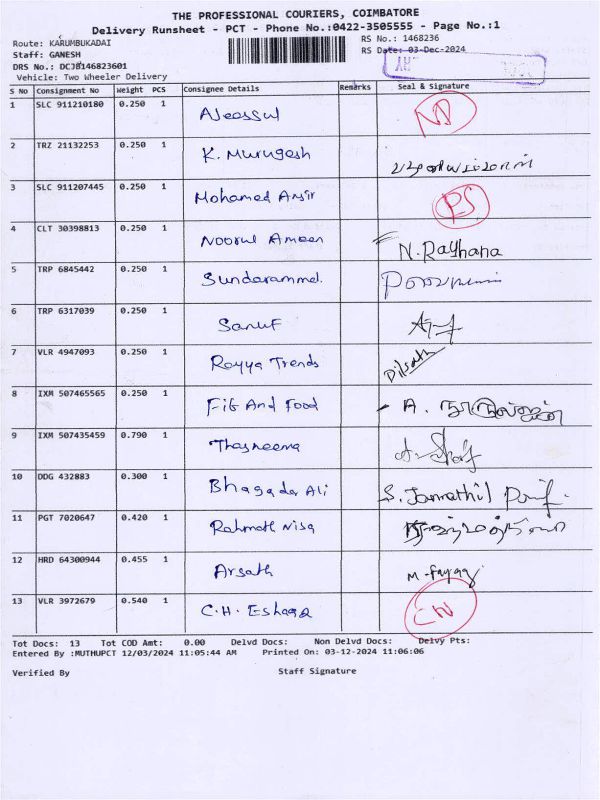 THE PROFESSIONAL COURIERS, COIMBATORE
Delivery Runsheet - PCT - Phone No.:0422-3505555 - Page No.:1
Route: KARUMBUKADAI RS No.: 1468236
Staff: GANESH RS Date: 03-Dec-2024
DRS No.: DCJB146823601
Vehicle: Two Wheeler Delivery
S No Consignment No Weight PCS Consignee Details Remarks Seal & Signature
1 SLC 911210180 0.250 1
2 TRZ 21132253 0.250 1 K. Murugesh
3 SLC 911207445 0.250 1 Mohamed Ansir
4 CLT 30398813 0.250 1 Noorul Ameen N. Rayhana
5 TRP 6845442 0.250 1 Sundarammal.
6 TRP 6317039 0.250 1 Saruf
7 VLR 4947093 0.250 1 Rayya Trends Dilsath
8 IXM 507465565 0.250 1 Fit And Food A.
9 IXM 507435459 0.790 1 Thasneema
10 DDG 432883 0.300 1 Bhagadar Ali S. Jannathil
11 PGT 7020647 0.420 1 Rahmath Nisa
12 HRD 64300944 0.455 1 Arsath M. Fayaz
13 VLR 3972679 0.540 1 C.H. Eshaqa
Tot Docs: 13 Tot COD Amt: 0.00 Delvd Docs: Non Delvd Docs: Delvy Pts:
Entered By :MUTHUPCT 12/03/2024 11:05:44 AM Printed On: 03-12-2024 11:06:06
Verified By Staff Signature